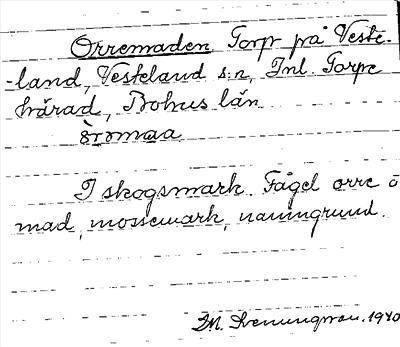 Orremaden Torp på Veste-
-land, Vesteland s:n, Inl. Torpe
härad, Bohus län
òrəmaa
I skogsmark. Fågel orre o
mad, mossemark, namngrund.
M. Svenungsson. 1940